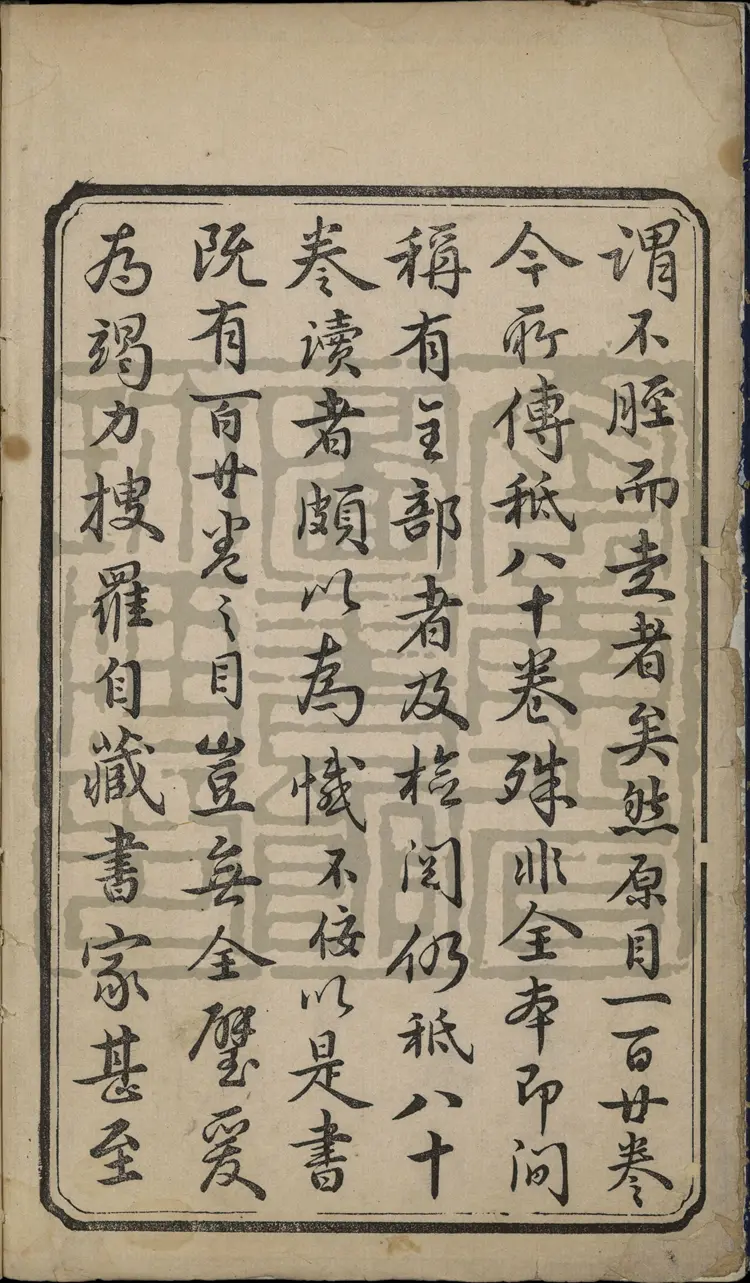 谓不胫而走者矣然原目一百廿卷
今所傳秪八十卷殊非全本即间
稱有全部者及檢阅仍秪八十
卷读者頗以為憾不佞以是書
既有百廿卷之目豈無全璧爰
為竭力搜羅自藏書家甚至